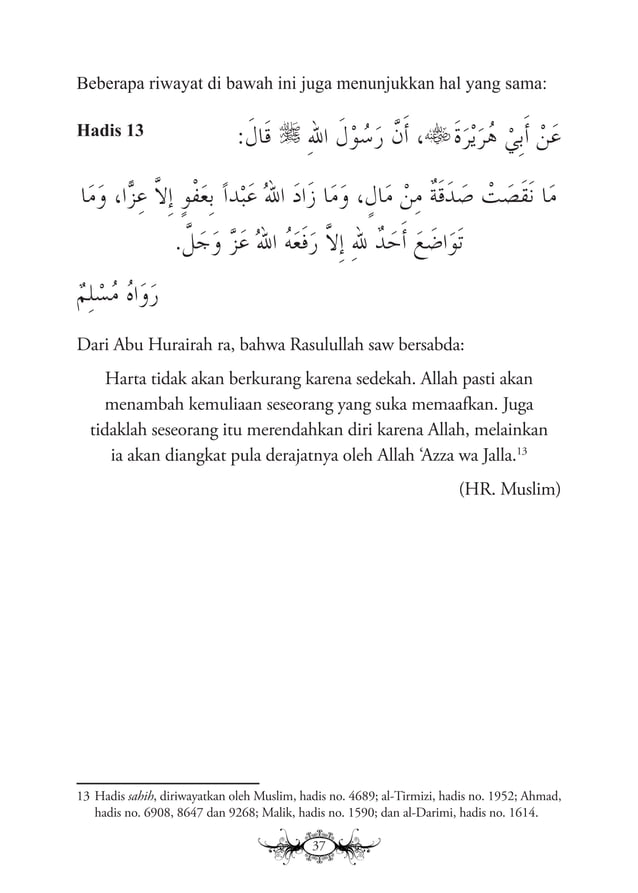 Beberapa riwayat di bawah ini juga menunjukkan hal yang sama:
Hadis 13
عَنْ أَبِيْ هُرَيْرَةَ ﷺ، أَنَّ رَسُوْلَ اللهِ ﷺ قَالَ:
مَا نَقَصَتْ صَدَقَةٌ مِنْ مَالٍ، وَمَا زَادَ اللهُ عَبْداً بِعَفْوٍ إِلاَّ عِزًّا، وَمَا
تَوَاضَعَ أَحَدٌ لِلهِ إِلاَّ رَفَعَهُ اللهُ عَزَّ وَجَلَّ.
رَوَاهُ مُسْلِمٌ
Dari Abu Hurairah ra, bahwa Rasulullah saw bersabda:
Harta tidak akan berkurang karena sedekah. Allah pasti akan
menambah kemuliaan seseorang yang suka memaafkan. Juga
tidaklah seseorang itu merendahkan diri karena Allah, melainkan
ia akan diangkat pula derajatnya oleh Allah ‘Azza wa Jalla.13
(HR. Muslim)
13 Hadis sahih, diriwayatkan oleh Muslim, hadis no. 4689; al-Tirmizi, hadis no. 1952; Ahmad,
hadis no. 6908, 8647 dan 9268; Malik, hadis no. 1590; dan al-Darimi, hadis no. 1614.
37